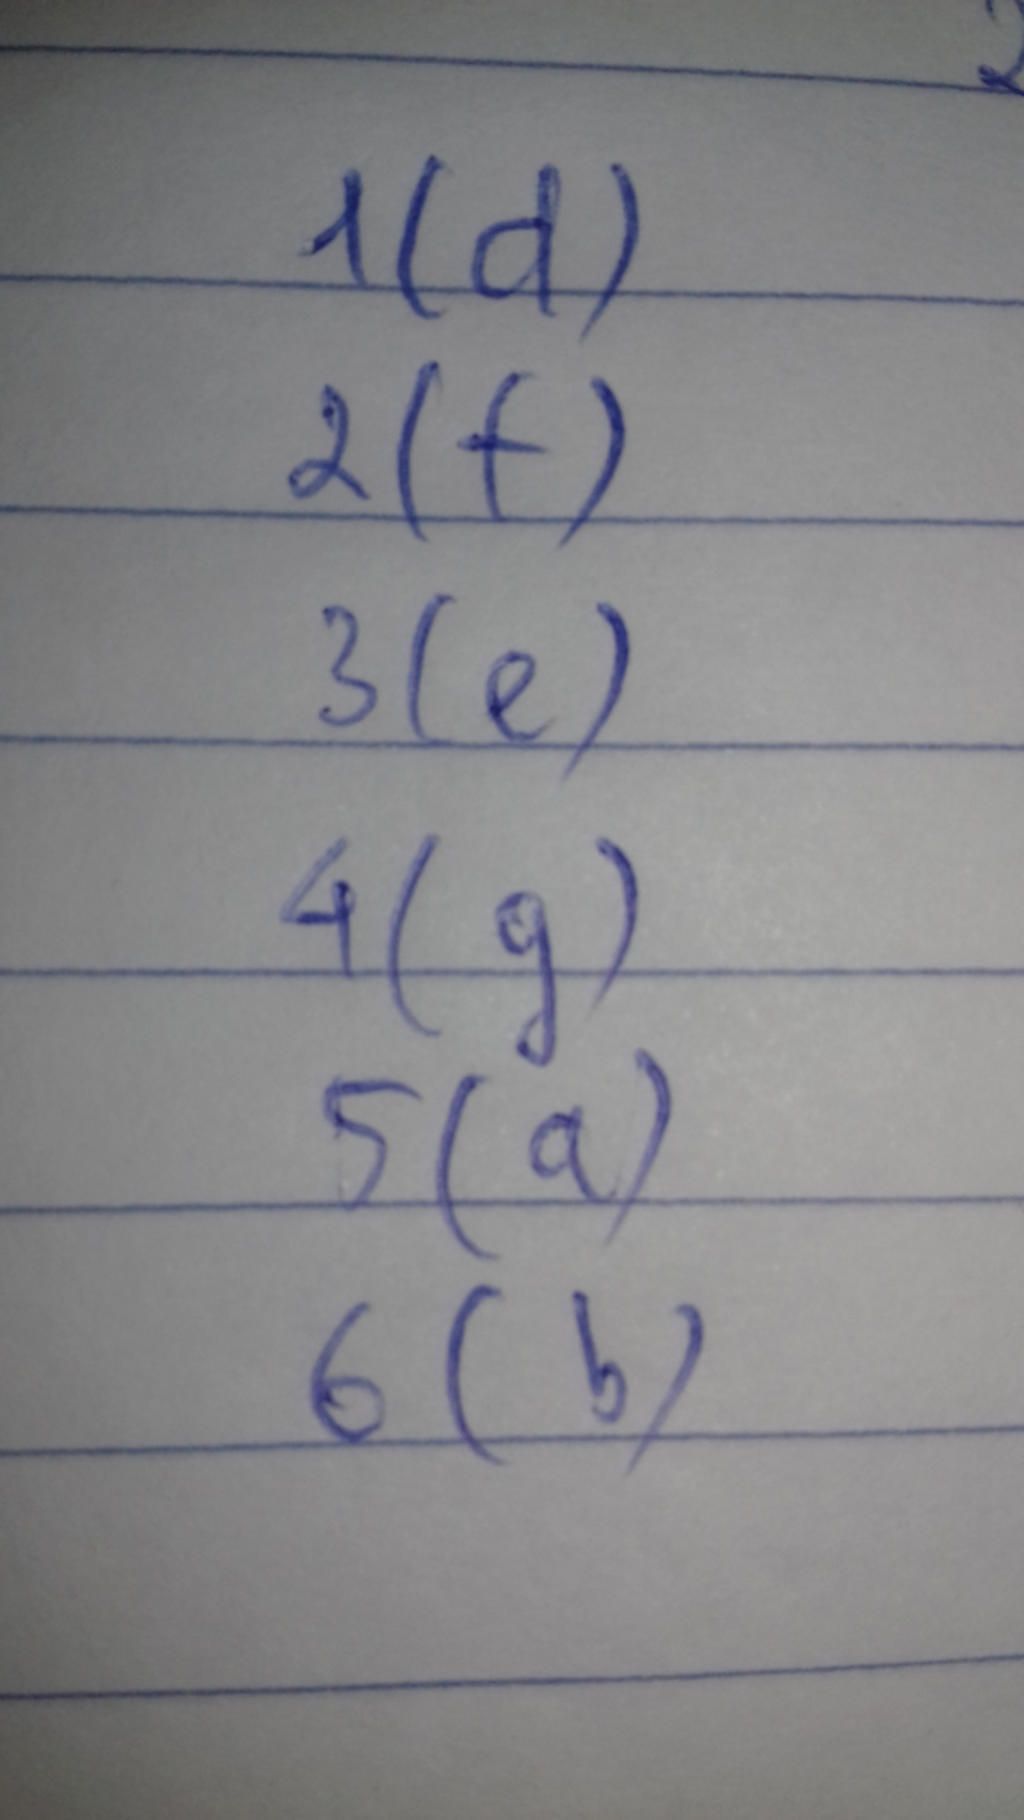 1(d)
2(f)
3(e)
4(g)
5(a)
6(b)